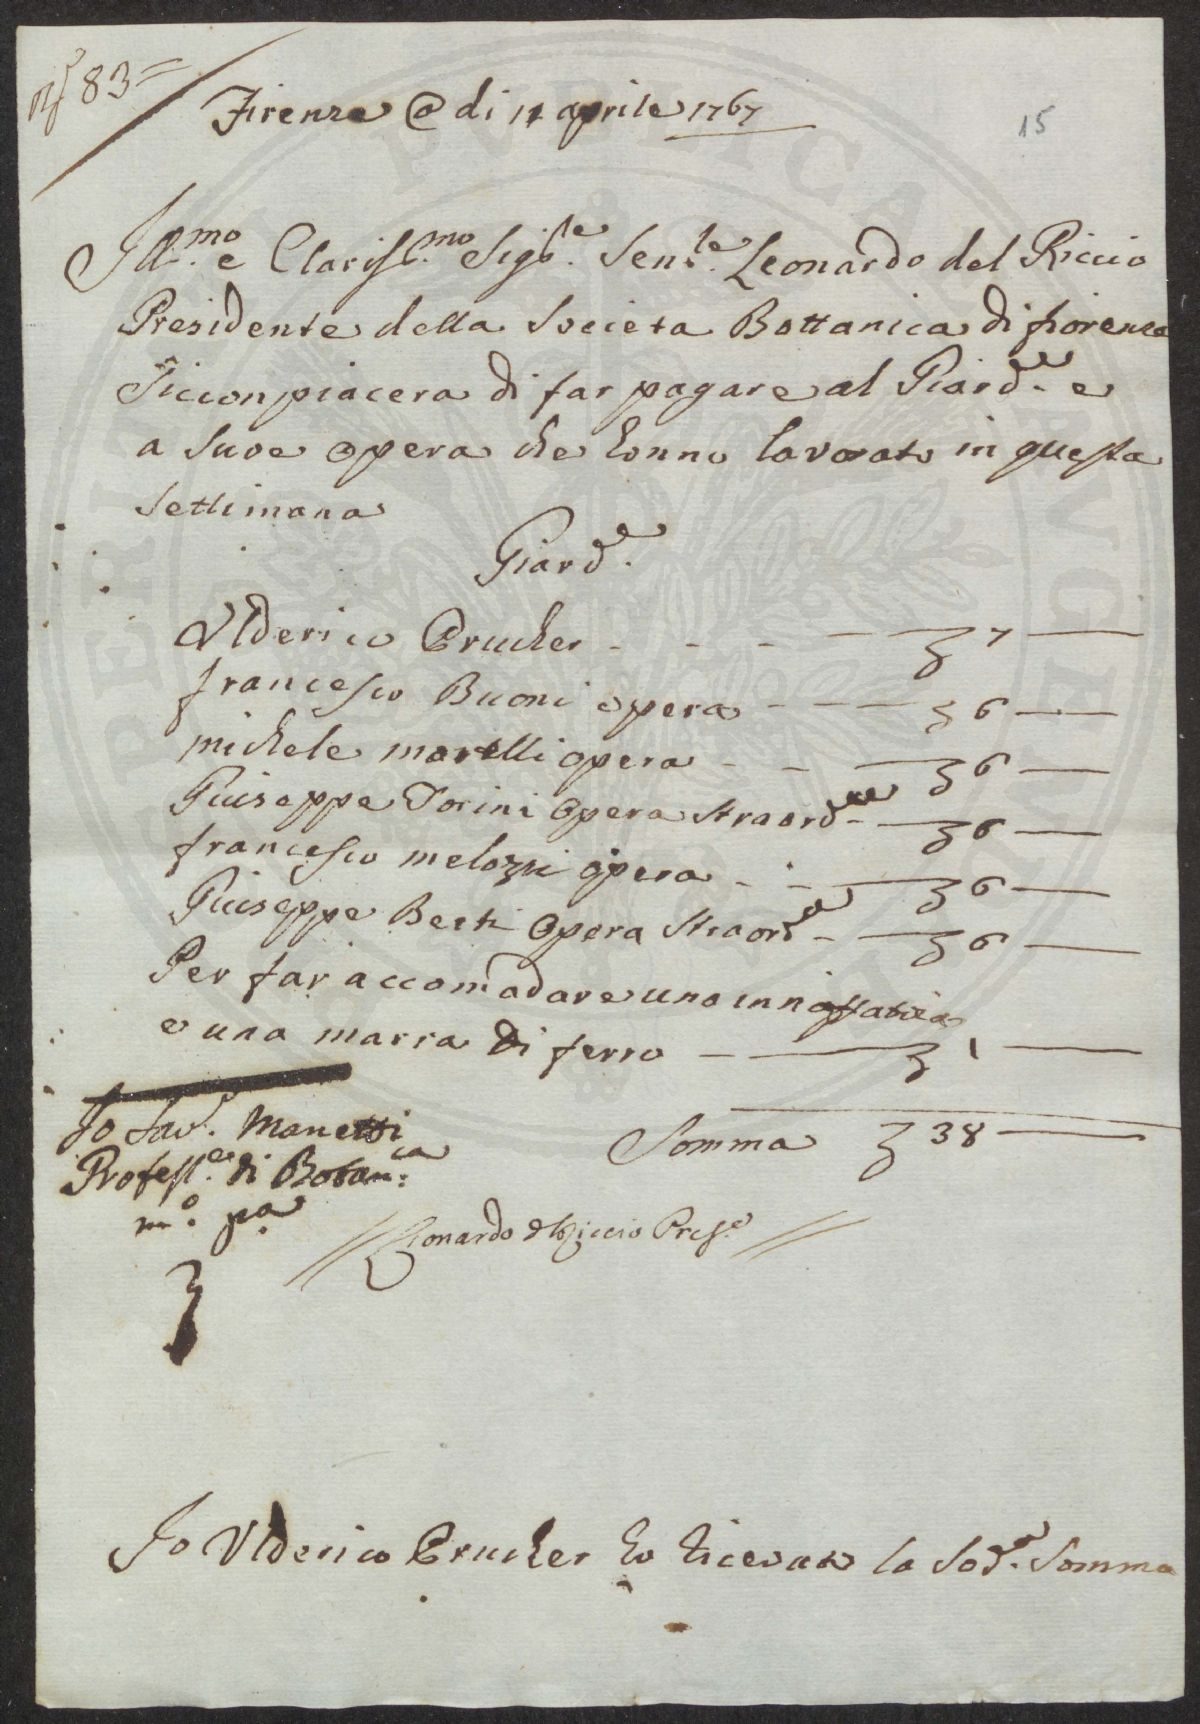 nº 83=
Firenze @ di 11 aprile 1767
15
Ill.mo e Clariss.mo Sig.re Sen.re Leonardo del Riccio
Presidente della Societa Bottanica di fiorenza
Siccompiacera di far pagare al Giard.re e
a Suoe opera che hanno lavorato in questa
Settimana
Giard.e
Vlderico Prucher - - - - 7
francesco Buoni opera - - - 6
michele morelli opera - - 6
Giuseppe Torini Opera straord. - 6
francesco melozzi opera - - 6
Giuseppe Berti Opera straord. - 6
Per far accomodare uno innaffiatoia
e una marra di ferro - 1
Somma 38
Io Sav. Manetti
Profess.e di Botan.ca
m.o p.a
Leonardo d Riccio Pres.e
Io Vlderico Prucher ho ricevuto la Sod.a Somma